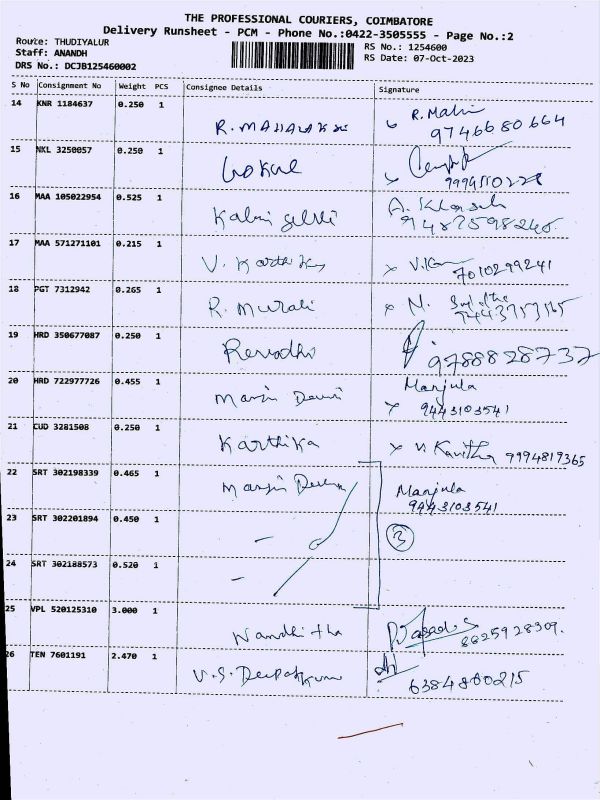 THE PROFESSIONAL COURIERS, COIMBATORE
Delivery Runsheet - PCM - Phone No.:0422-3505555 - Page No.:2
Route: THUDIYALUR
RS No.: 1254600
Staff: ANANDH
RS Date: 07-Oct-2023
DRS No.: DCJB125460002
S No Consignment No Weight PCS Consignee Details Signature
14 KNR 1184637 0.250 1
R. Malni
9746680664
15 NKL 3250057 0.250 1 Gokul
16 MAA 105022954 0.525 1 Kalai selvi
9487598246
17 MAA 571271101 0.215 1 V. Karthik
7010299241
18 PGT 7312942 0.265 1 R. Murali M.
19 HRD 350677087 0.250 1 Revadhi
9788828737
20 HRD 722977726 0.455 1 Manju Devi Manjula
9443103541
21 CUD 3281508 0.250 1 Karthika V. Kavitha 9994819365
22 SRT 302198339 0.465 1 Manju Manjula
9443103541
23 SRT 302201894 0.450 1 - 3
24 SRT 302188573 0.520 1 -
25 VPL 520125310 3.000 1 Nandhitha
8825928309.
26 TEN 7601191 2.470 1 V.S. Deepakkumar
6384860215